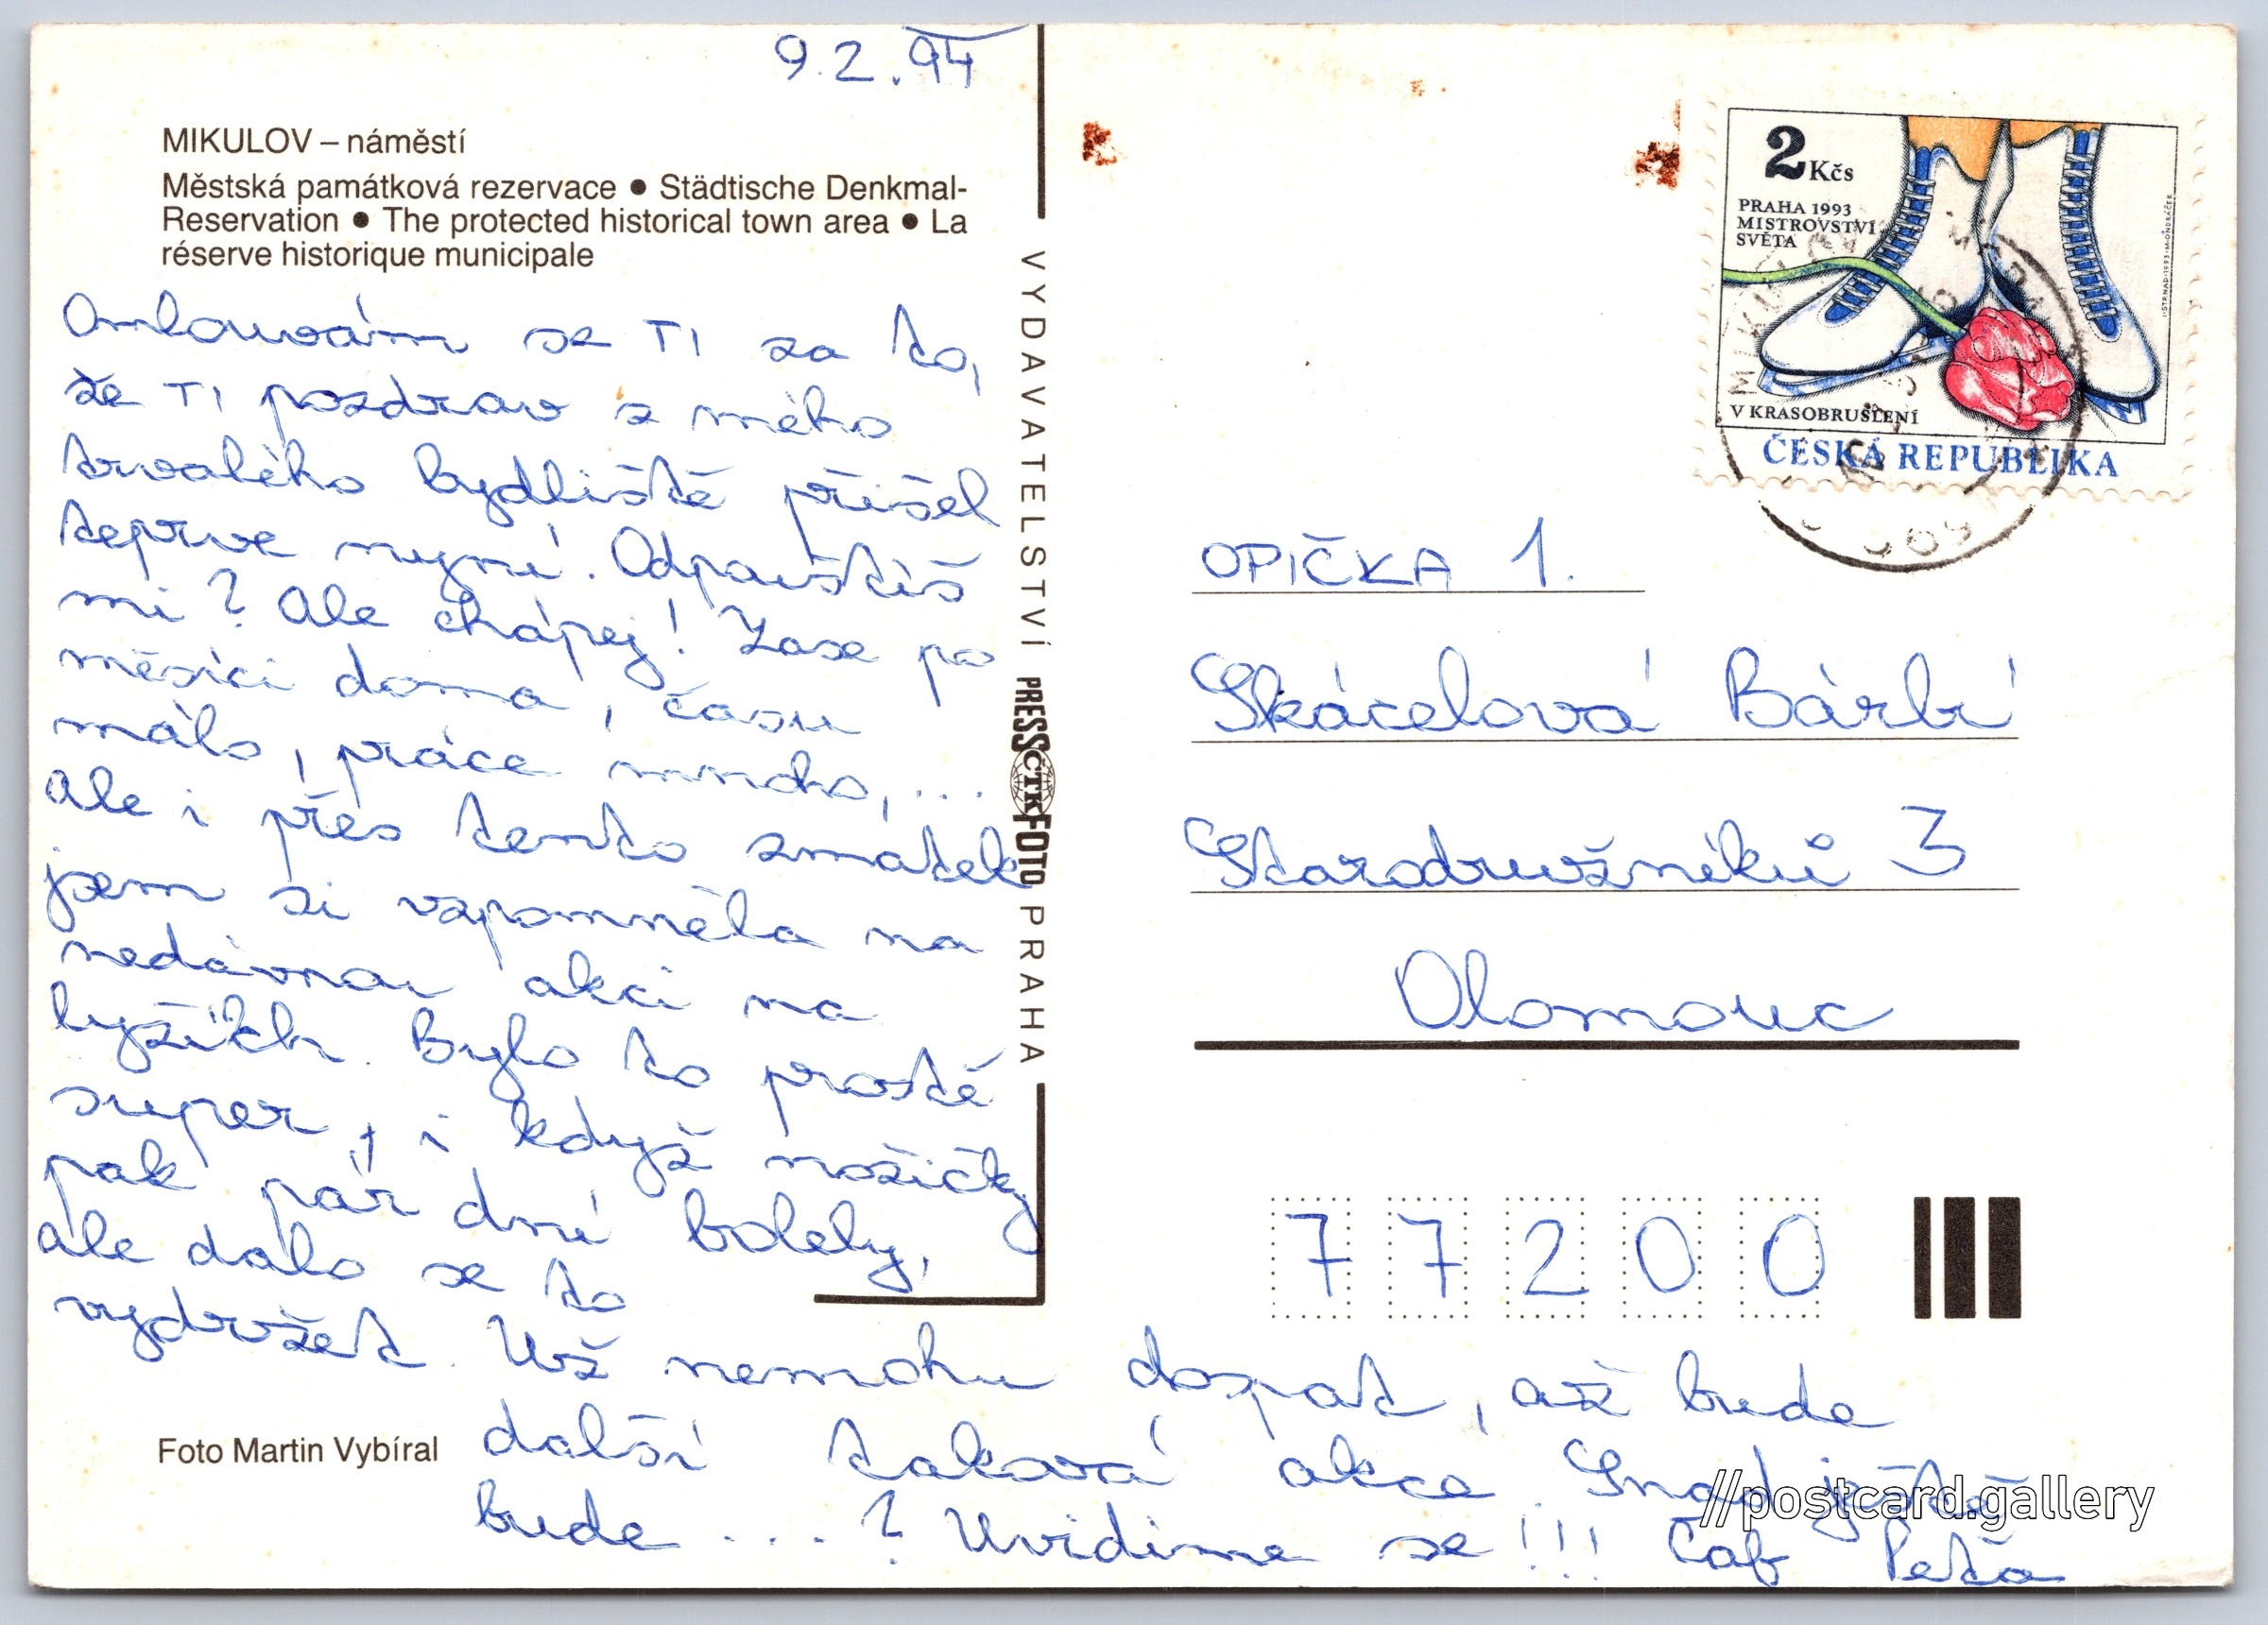 9.2.94
MIKULOV – náměstí
Městská památková rezervace • Städtische Denkmal-
Reservation • The protected historical town area • La
réserve historique municipale
Omlouvám se TI za to,
že TI pozdrav z mého
trvalého bydliště přišel
teprve nyní. Odpouštíš
mi? Ale chápej! Zase po
měsíci doma, času
málo, práce mnoho, ...
Ale i přes tento zmatek
jsem si vzpomněla na
nedávnou akci na
lyžích. Bylo to prostě
super, i když nožičky
pak pár dní bolely,
ale dalo se to
vydržet. Už nemohu dospat, až bude
další taková akce. Snad ještě
bude ...? Uvidíme se!!! Čau Peťa
Foto Martin Vybíral
VYDAVATELSTVÍ PRESSČTKFOTO PRAHA
2 Kčs
PRAHA 1993
MISTROVSTVÍ
SVĚTA
V KRASOBRUSLENÍ
ČESKÁ REPUBLIKA
I·STRNAD·1993·M·ONDRÁČEK
MIKULOV
OPIČKA 1.
Skácelová Bárbí
Starodružníků 3
Olomouc
77200
//postcard.gallery